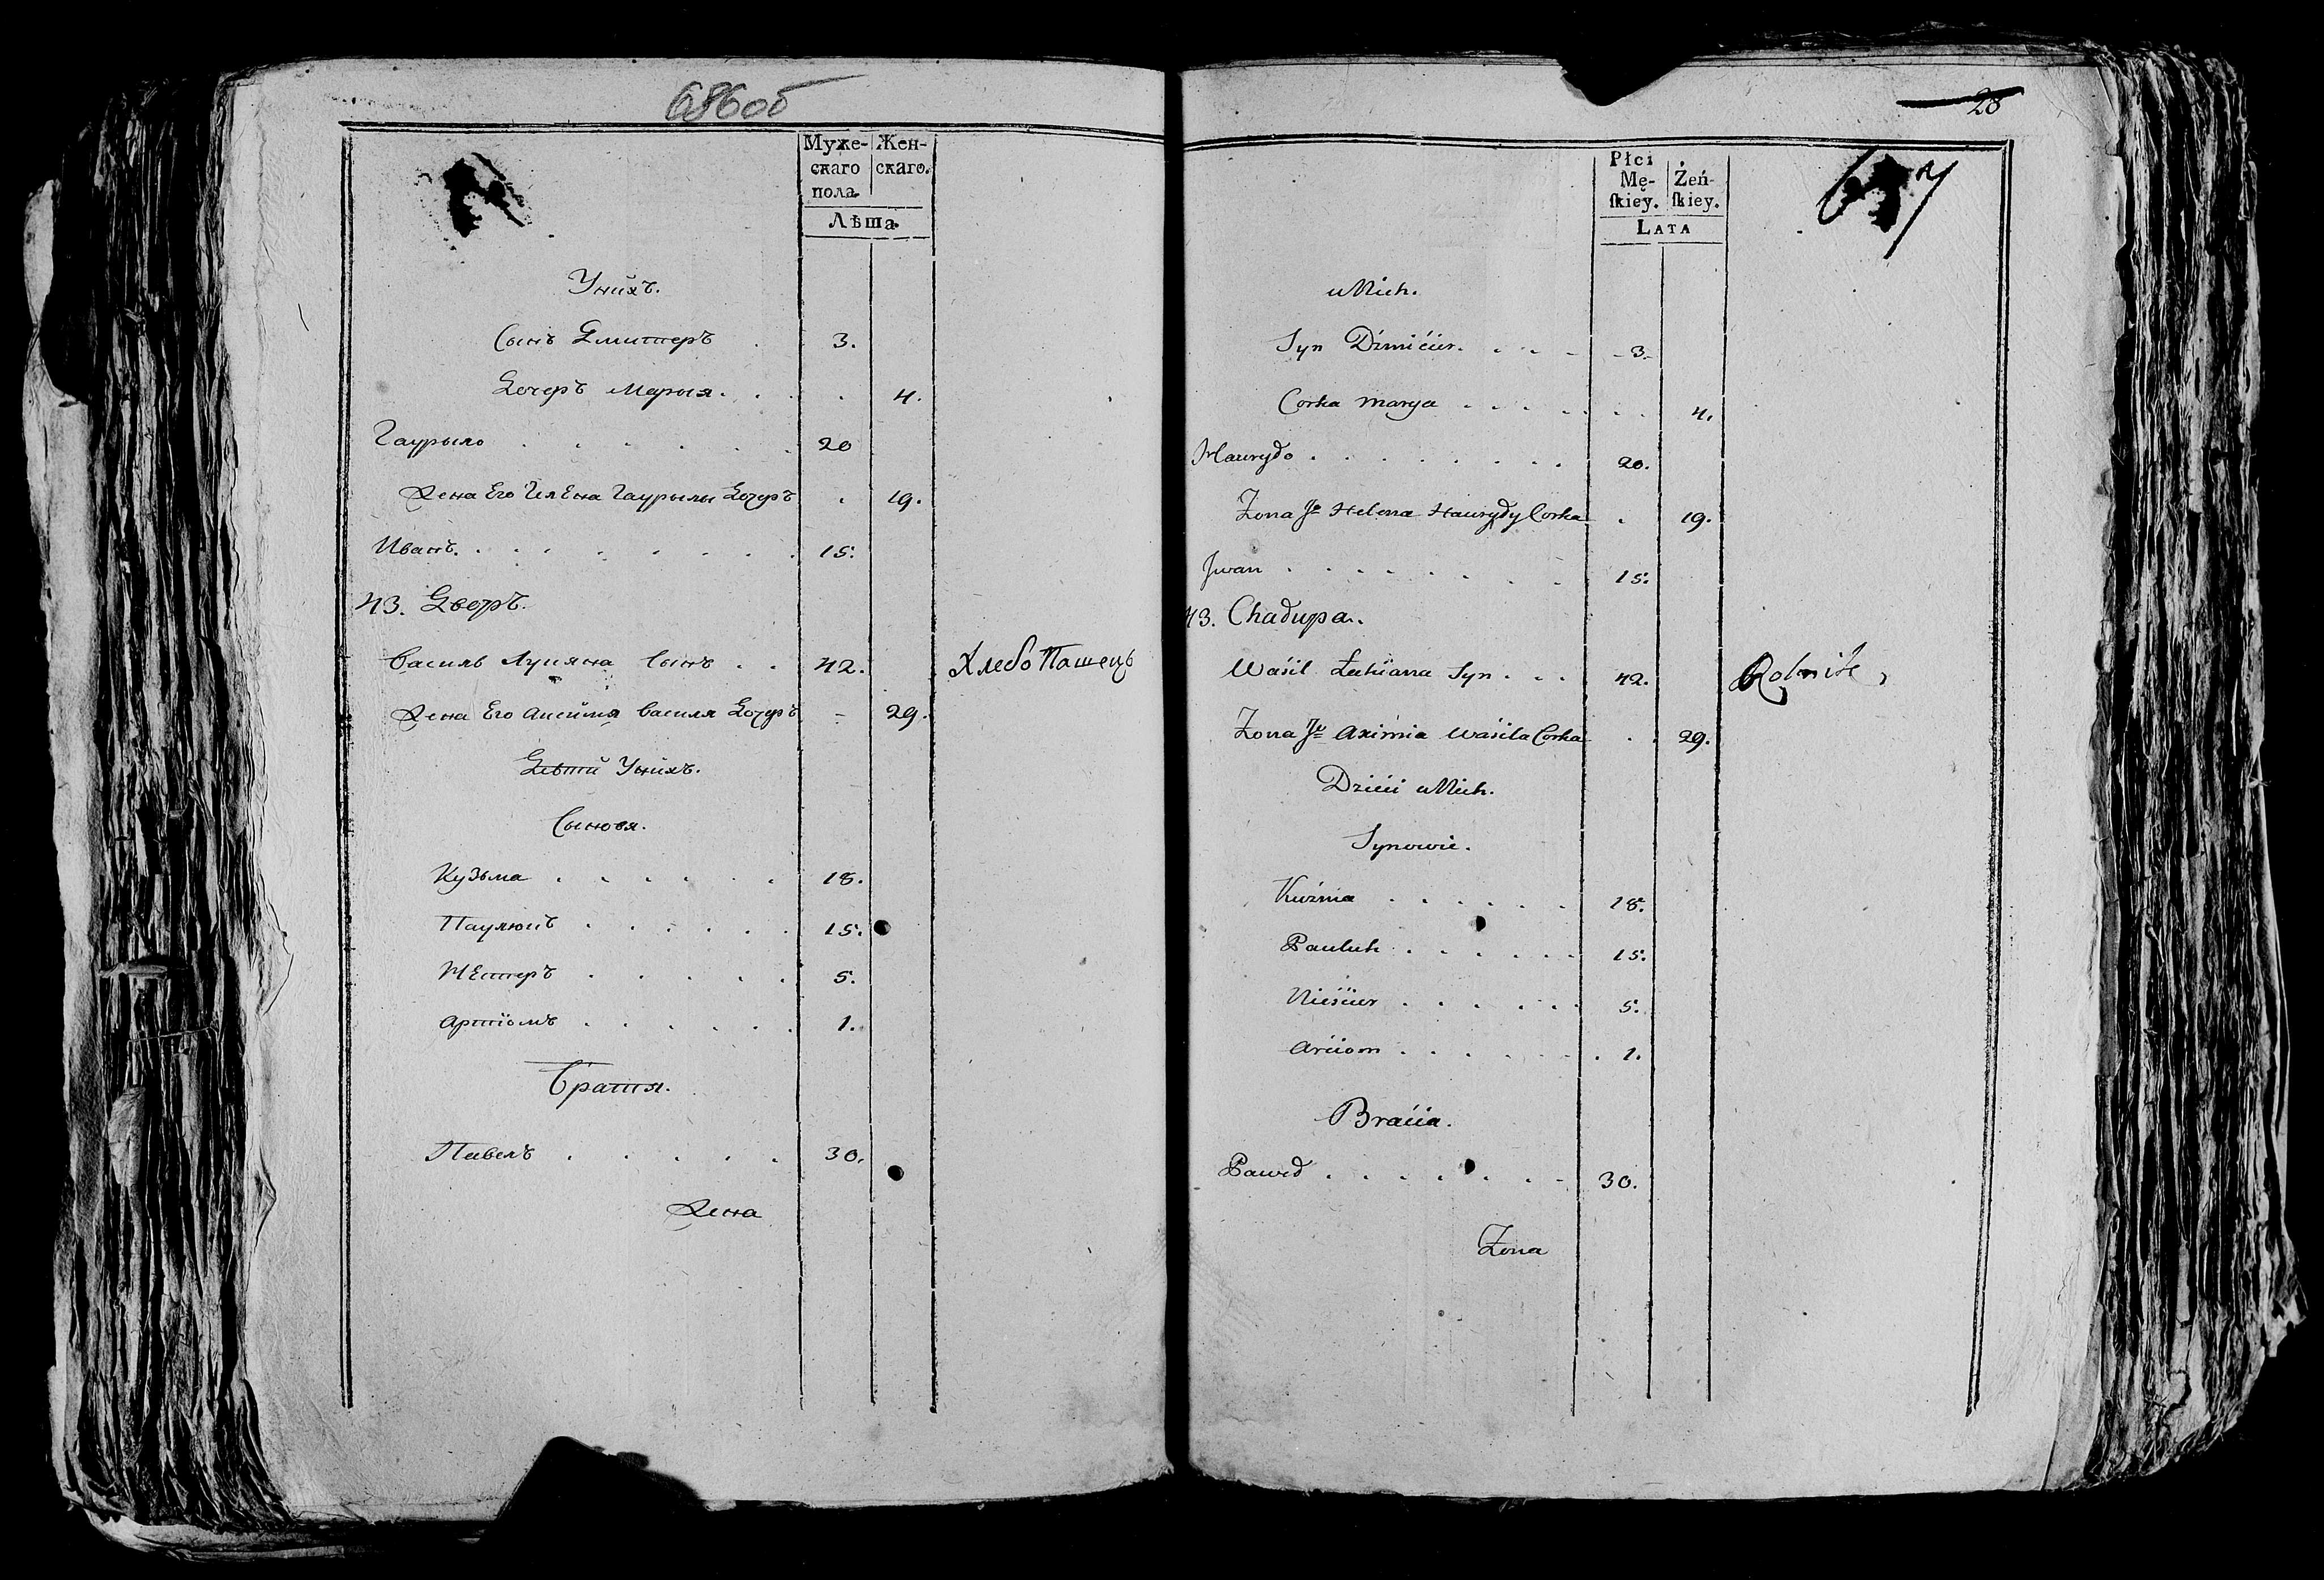 68об
Муже- Жен-
скаго скаго.
пола.
Лѣта.
Унихъ.
Сынъ Дмитеръ . 3.
Дочеръ Марыя . . . . 4.
Гаурыло . . . . . . 20
Жена Его Гелена Гаурылы Дочеръ . 19.
Иванъ. . . . . . . . . 15.
43. Дворъ.
Василь Лукяна Сынъ . . 42. ХлебоПашецъ
Жена Его Аксимія Василя Дочеръ - 29.
Дѣти Унихъ.
Сыновя.
Кузьма . . . . . . 18.
Паулюкъ . . . . . . 15.
НЕстеръ . . . . . 5.
Артіомъ . . . . . . 1.
Братія.
Павелъ . . . . . 30.
Жена
28
67
Płci
Mę- Żeń-
ſkiey. ſkiey.
LATA
uNich.
Syn Dźmićier. . . - - 3.
Corka Marya . . . . . . . 4.
Hauryło . . . . . . . . 20.
Żona Je Helena Hauryły Corka . 19.
Jwan . . . . . . . . 15.
43. Chałupa.
Waśil Łukiana Syn . . . 42. Rolnik,
Żona Je Aximia Waśila Corka . . 29.
Dzieci uNich.
Synowie.
Kuźma . . . . . . 18.
Pauluk . . . . . . 15.
Nieścier . . . . . . 5.
Arciom . . . . . . . 1.
Braćia.
Paweł . . . . . . . - 30.
Żona